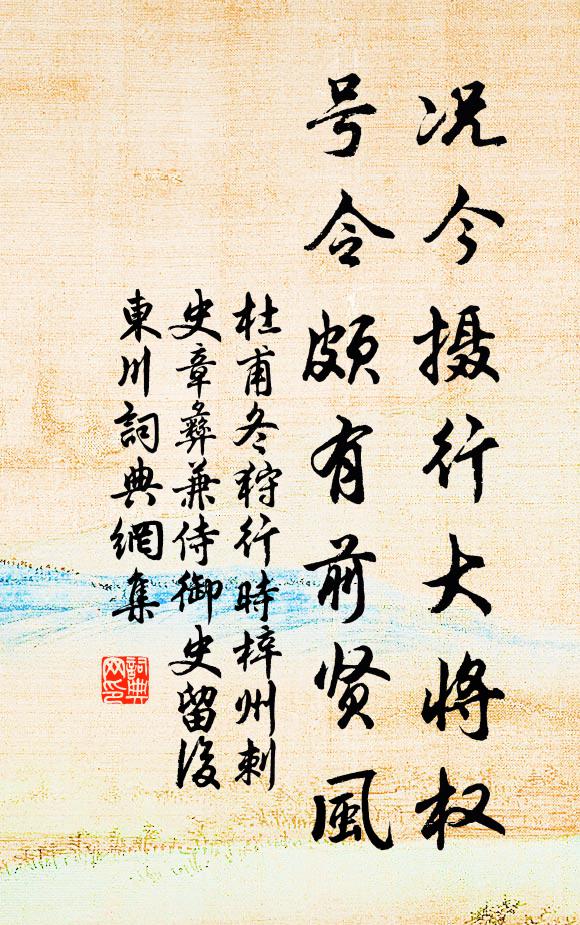 况今摄行大将权
号令颇有前贤風
杜甫冬狩行時梓州刺
史章彝兼侍御史留後
東川詞典網集
詞典
网印